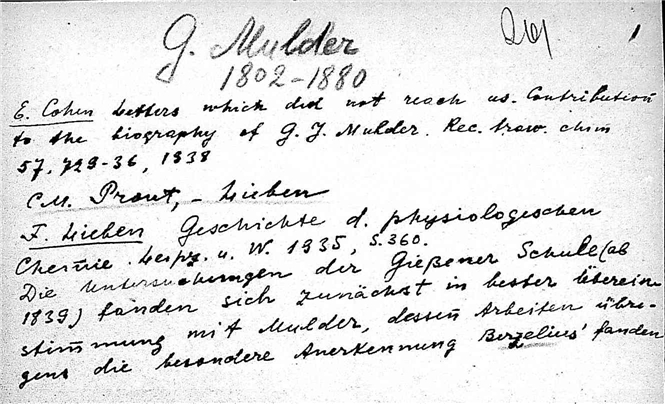 G. Mulder
1802-1880
1
E. Cohen Letters which did not reach us. Contribution
to the biography of G. J. Mulder. Rec. trav. chim
57. 729-36, 1938
См. Prout, - Lieben
F. Lieben Geschichte d. physiologischen
Chemie. Leipz. u. W. 1935, S. 360.
Die Untersuchungen der Gießener Schule (ab
1839) fanden sich zunächst in bester Überein-
stimmung mit Mulder, dessen Arbeiten übri-
gens die besondere Anerkennung Berzelius' fanden